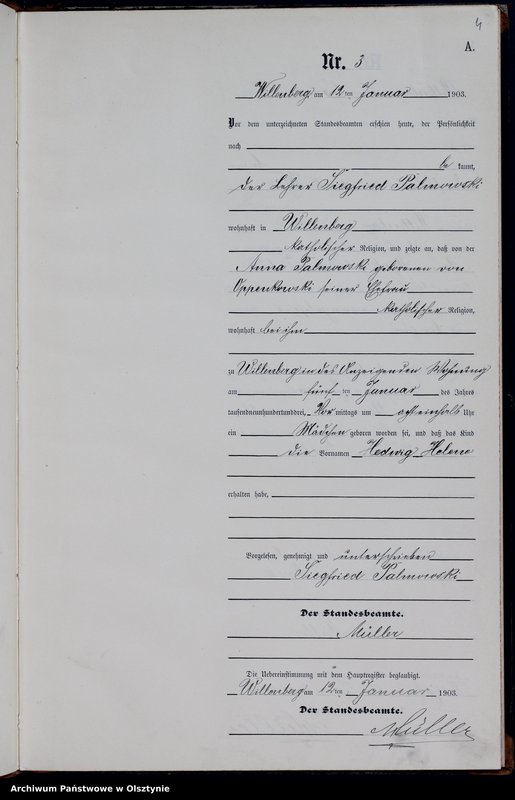 4
A.
Nr. 3
Willenberg am 12 ten Januar 1903.
Vor dem unterzeichneten Standesbeamten erschien heute, der Persönlichkeit
nach
be kannt,
der Lehrer Siegfried Palmowski
wohnhaft in Willenberg
katholischer Religion, und zeigte an, daß von der
Anna Palmowski geborenen von
Oppenkowski seiner Ehefrau
katholischer Religion,
wohnhaft bei ihm
zu Willenberg in des Anzeigenden Wohnung
am fünf ten Januar des Jahres
tausendneunhundertunddrei, Vor mittags um acht einhalb Uhr
ein Mädchen geboren worden sei, und daß das Kind
die Vornamen Hedwig Helene
erhalten habe,
Vorgelesen, genehmigt und unterschrieben
Siegfried Palmowski
Der Standesbeamte.
Müller
Die Uebereinstimmung mit dem Hauptregister beglaubigt.
Willenberg am 12 ten Januar 1903.
Der Standesbeamte.
Müller
Archiwum Państwowe w Olsztynie